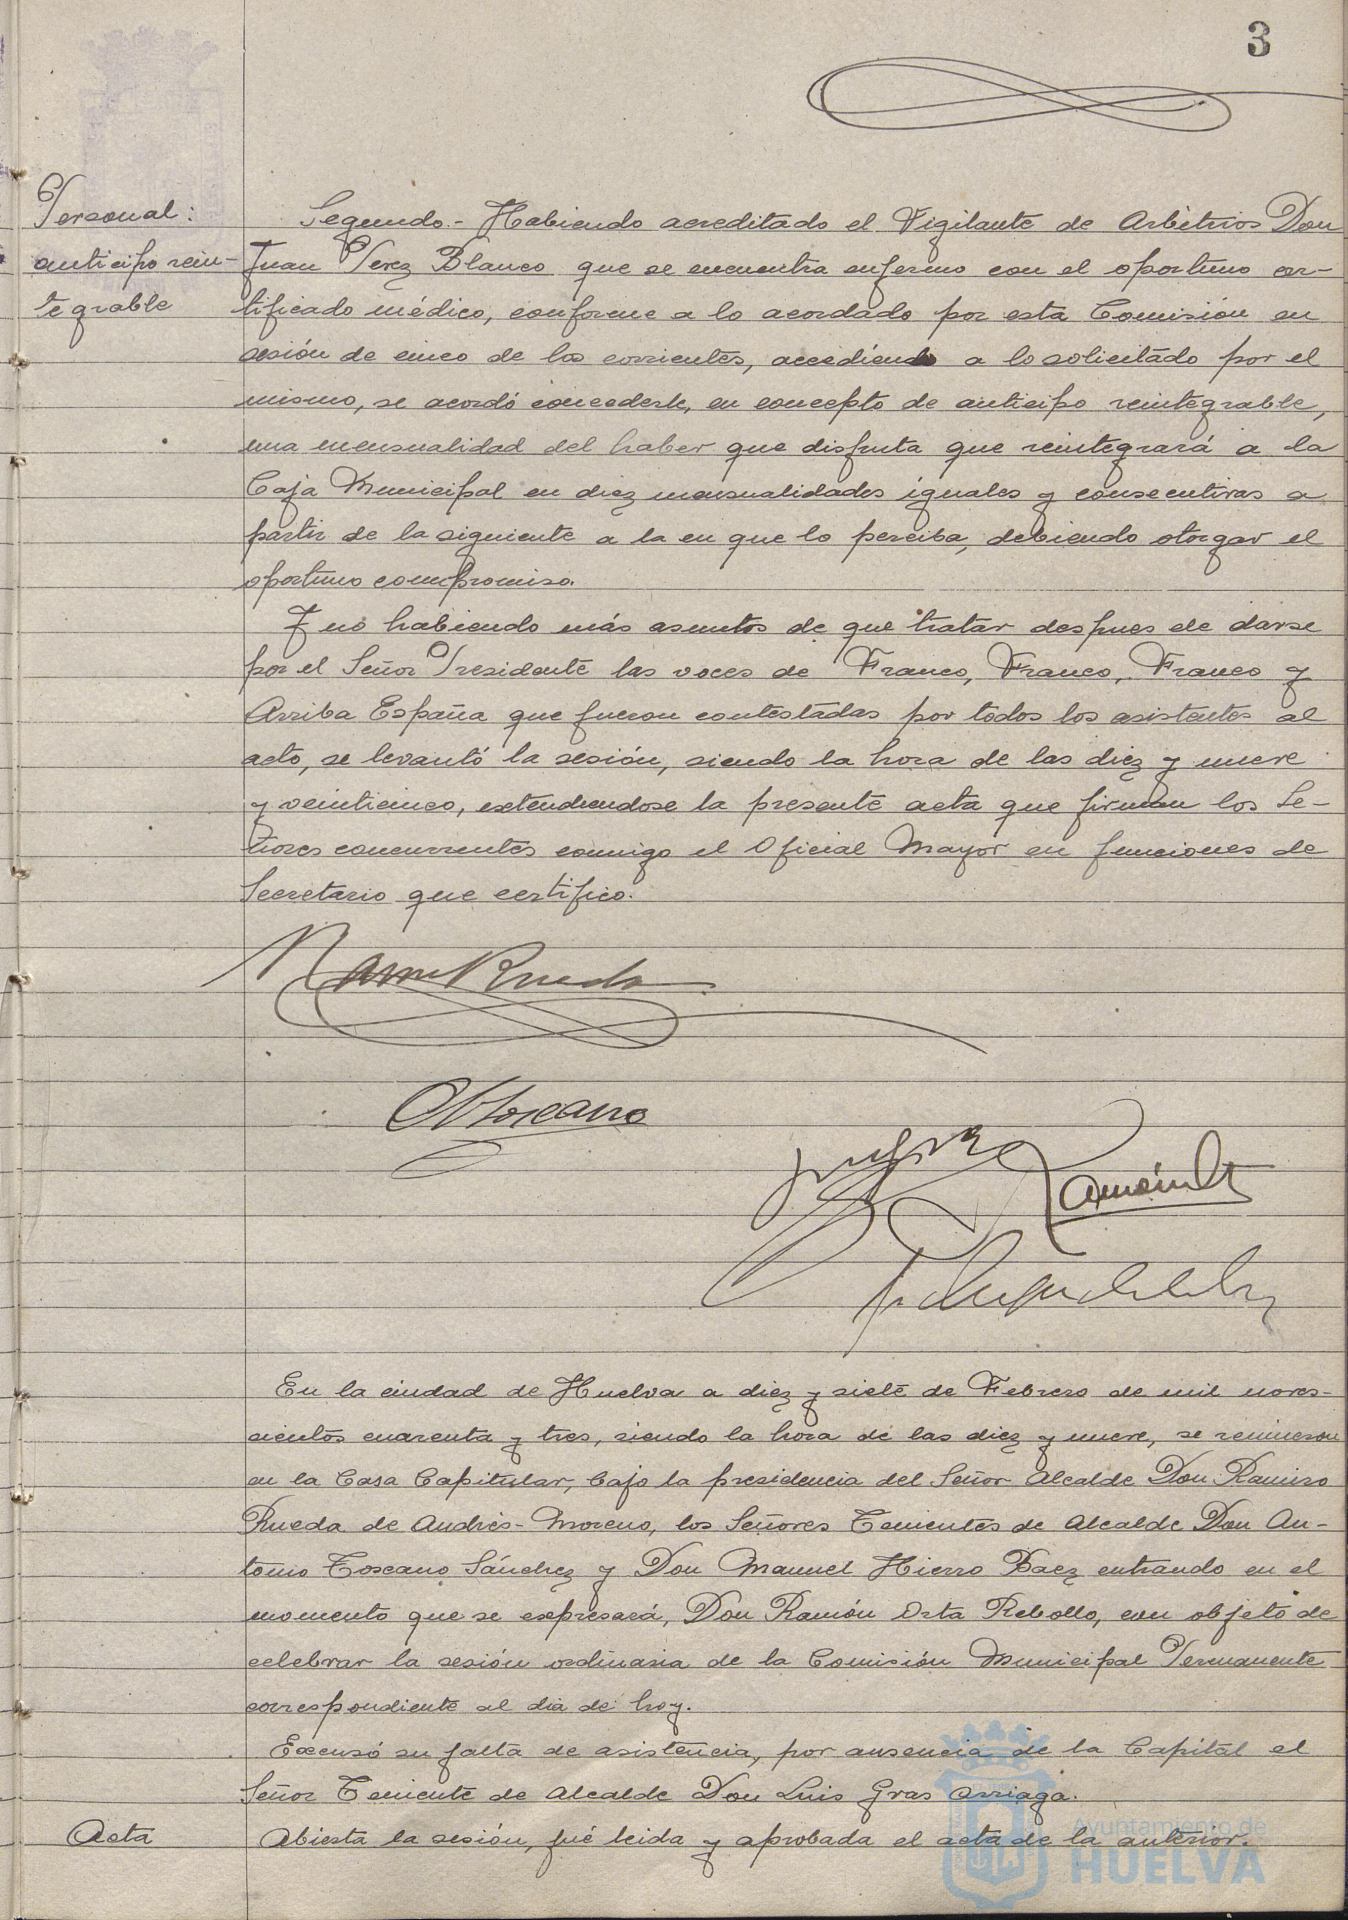 3
Personal:
anticipo rein-
tegrable
Segundo.- Habiendo acreditado el Vigilante de Arbitrios Don
Juan Perez Blanco que se encuentra enfermo con el oportuno cer-
tificado médico, conforme a lo acordado por esta Comisión en
sesión de cinco de los corrientes, accediendo a lo solicitado por el
mismo, se acordó concederle, en concepto de anticipo reintegrable,
una mensualidad del haber que disfruta que reintegrará a la
Caja Municipal en diez mensualidades iguales y consecutivas a
partir de la siguiente a la en que lo perciba, debiendo otorgar el
oportuno compromiso.
Y no habiendo más asuntos de que tratar despues de darse
por el Señor Presidente las voces de Franco, Franco, Franco y
Arriba España que fueron contestadas por todos los asistentes al
acto, se levantó la sesión, siendo la hora de las diez y nueve
y veinticinco, extendiendose la presente acta que firman los Se-
ñores concurrentes conmigo el Oficial Mayor en funciones de
Secretario que certifico.
Ramiro Rueda
A Toscano
En la ciudad de Huelva a diez y siete de Febrero de mil noves-
cientos cuarenta y tres, siendo la hora de las diez y nueve, se reunieron
en la Casa Capitular, bajo la presidencia del Señor Alcalde Don Ramiro
Rueda de Andrés-Moreno, los Señores Tenientes de Alcalde Don An-
tonio Toscano Sánchez y Don Manuel Hierro Baez entrando en el
momento que se expresará, Don Ramón Orta Rebollo, con objeto de
celebrar la sesión ordinaria de la Comisión Municipal Permanente
correspondiente al dia de hoy.
Excusó su falta de asistencia, por ausencia de la Capital el
Señor Teniente de Alcalde Don Luis Gras Arriaga.
Acta
Abierta la sesión, fué leida y aprobada el acta de la anterior.
Ayuntamiento de
HUELVA